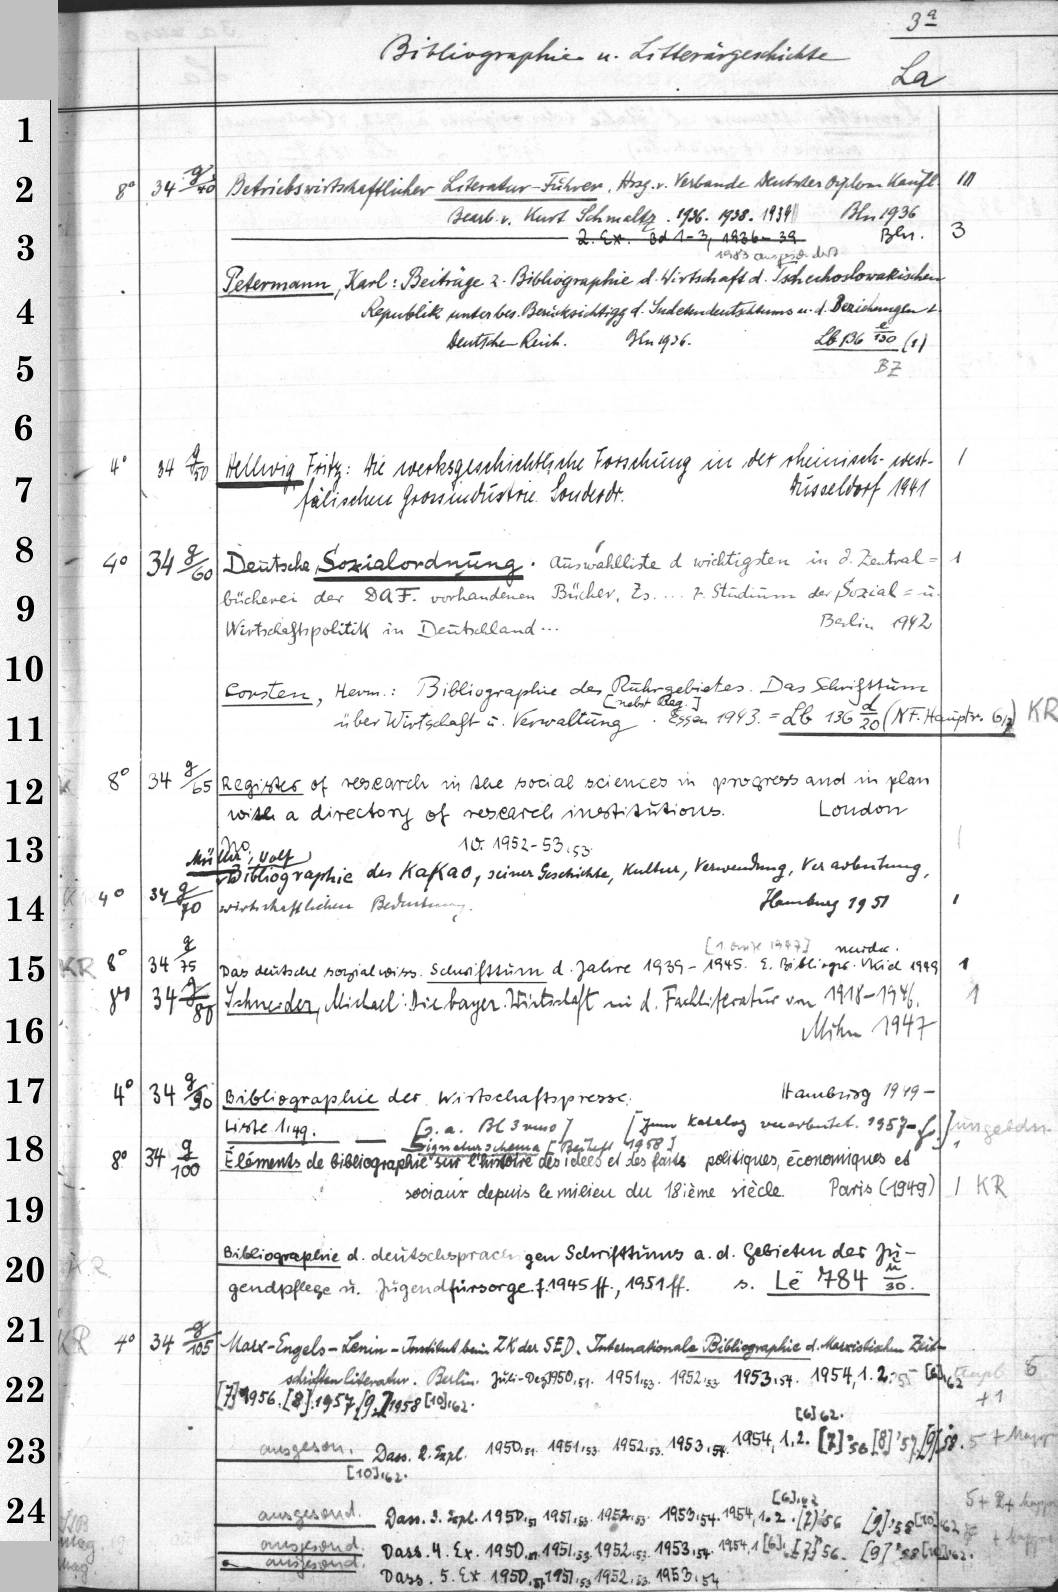 3ª
Bibliographie u. Litterärgeschichte
La
1
2
8° 34 g/40 Betriebswirtschaftlicher Literatur-Führer, Hrsg. v. Verbande Deutscher Diplom Kaufl. III
Bearb. v. Kurt Schmaltz. 1936. 1938. 1939 Bln 1936
3
2. Ex. Bd 1-3, 1936-39 Bln. 3
1983 ausgesondert
Petermann, Karl: Beiträge z. Bibliographie d. Wirtschaft d. Tschechoslowakischen
4
Republik unter bes. Berücksichtigg d. Sudetendeutschtums u. d. Beziehungen z.
Deutschen Reich. Bln 1936. Lb 136 e/130 (1)
5
BZ
6
4° 34 g/50 Hellwig Fritz: Die werksgeschichtliche Forschung in der rheinisch-west- 1
7
fälischen Grossindustrie. Sonderdr. Düsseldorf 1941
8
4° 34 g/60 Deutsche Sozialordnung. Auswahlliste d wichtigsten in d. Zentral= 1
9
bücherei der DAF. vorhandenen Bücher, Zs.... z. Studium der Sozial= u.
Wirtschaftspolitik in Deutschland... Berlin 1942
10
Corsten, Herm.: Bibliographie des Ruhrgebietes. Das Schrifttum
[nebst Reg.]
11
über Wirtschaft u. Verwaltung. Essen 1943. = Lb 136 d/20 (NF. Hauptw. 6/7) KR
12
8° 34 g/65 Register of research in the social sciences in progress and in plan
with a directory of research institutions. London
13
No. 10. 1952-53,53.
Müller, Wolf
Bibliographie des Kakao, seiner Geschichte, Kultur, Verwendung, Verarbeitung,
14
4° 34 g/70 wirtschaftlichen Bedeutung. Hamburg 1951 1
15
KR 8° 34 g/75 Das deutsche sozialwiss. Schrifttum d. Jahre 1939-1945. E. Bibliogr. Kiel 1949 1
8° 34 g/80 Schneider, Michael: Die bayer. Wirtschaft in d. Fachliteratur von 1918-1946. 1
16
Mchn 1947
17
4° 34 g/90 Bibliographie der Wirtschaftspresse. Hamburg 1949-
Liste 1.49. [s. a. Bl 3 verso] [Zum Katalog verarbeitet. 1957-]
18
Signaturschema [Beiheft 1958]
8° 34 g/100 Éléments de bibliographie sur l'histoire des idées et des faits politiques, économiques et
sociaux depuis le milieu du 18ième siècle. Paris (1949) 1 KR
19
20
KR Bibliographie d. deutschsprachigen Schrifttums a. d. Gebieten der Ju-
gendpflege u. Jugendfürsorge f. 1945 ff., 1951 ff. s. Lë 784 u/30.
21
KR 4° 34 g/105 Marx-Engels-Lenin-Institut beim ZK der SED. Internationale Bibliographie d. Marxistischen Zeit-
22
schriften literatur. Berlin. Juli-Dez 1950,51. 1951,53. 1952,53. 1953,54. 1954,1.2.,55 [6],62 5
[7] 1956. [8] 1957. [9] 1958 [10],62. +1
[6] 62.
23
ausgeson. Dass. 2. Expl. 1950,51. 1951,53. 1952,53. 1953,54. 1954, 1,2. [7] '56 [8] '57, [9] 58. 5
[10],62.
24
[6],62 5+2+
ausgesond. Dass. 3. Expl. 1950,51 1951,53. 1952,53. 1953,54. 1954,1.2. [7] '56 [9] '58 [10],62
ausgesond. Dass. 4. Ex. 1950,51 1951,53 1952,53. 1953,54. 1954,1 [6] [7] '56. [9] '58 [10],62.
ausgesond. Dass. 5. Ex 1950,51 1951,53 1952,53. 1953,54